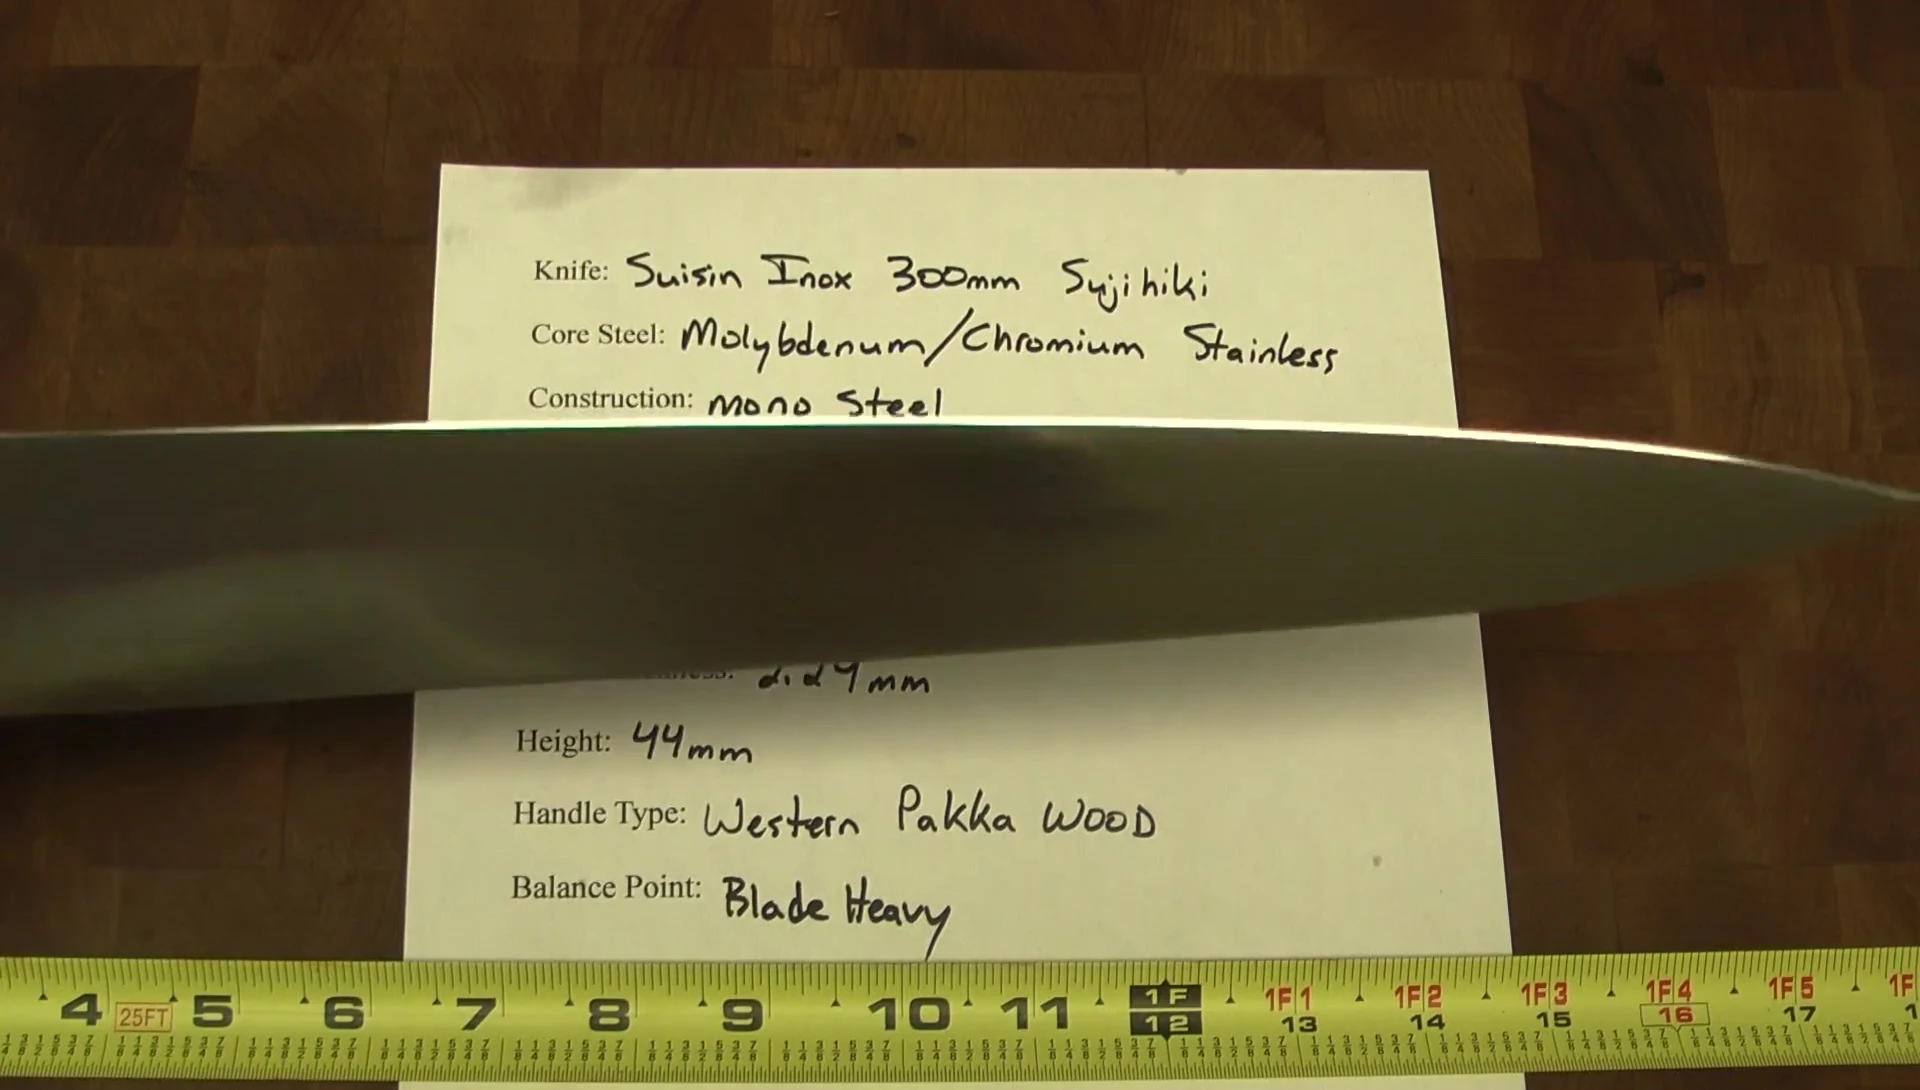 Knife: Suisin Inox 300mm Sujihiki
Core Steel: Molybdenum/Chromium Stainless
Construction: mono Steel
mm
Height: 44mm
Handle Type: Western Pakka WOOD
Balance Point: Blade Heavy
4 25FT 5 6 7 8 9 10 11 1F 1F1 1F2 1F3 1F4 1F5 1F
12 13 14 15 16 17 1